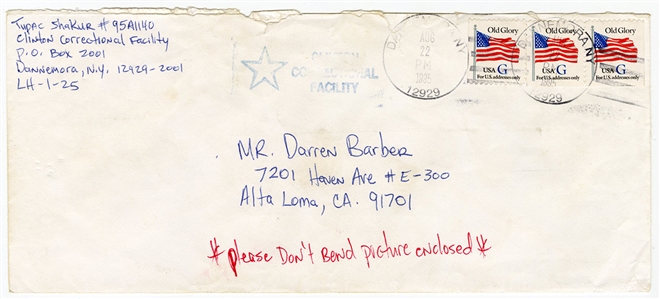 Tupac Shakur # 95A1140
Clinton Correctional Facility
P.O. Box 2001
Dannemora, N.Y. 12929-2001
LH-1-25
CLINTON
CORRECTIONAL
FACILITY
AUG
22
PM
1995
12929
Old Glory
USA G
For U.S. addresses only
Old Glory
USA G
For U.S. addresses only
Old Glory
USA G
For U.S. addresses only
12929
MR. Darren Barber
7201 Haven Ave # E-300
Alta Loma, CA. 91701
*please Don't Bend picture enclosed*